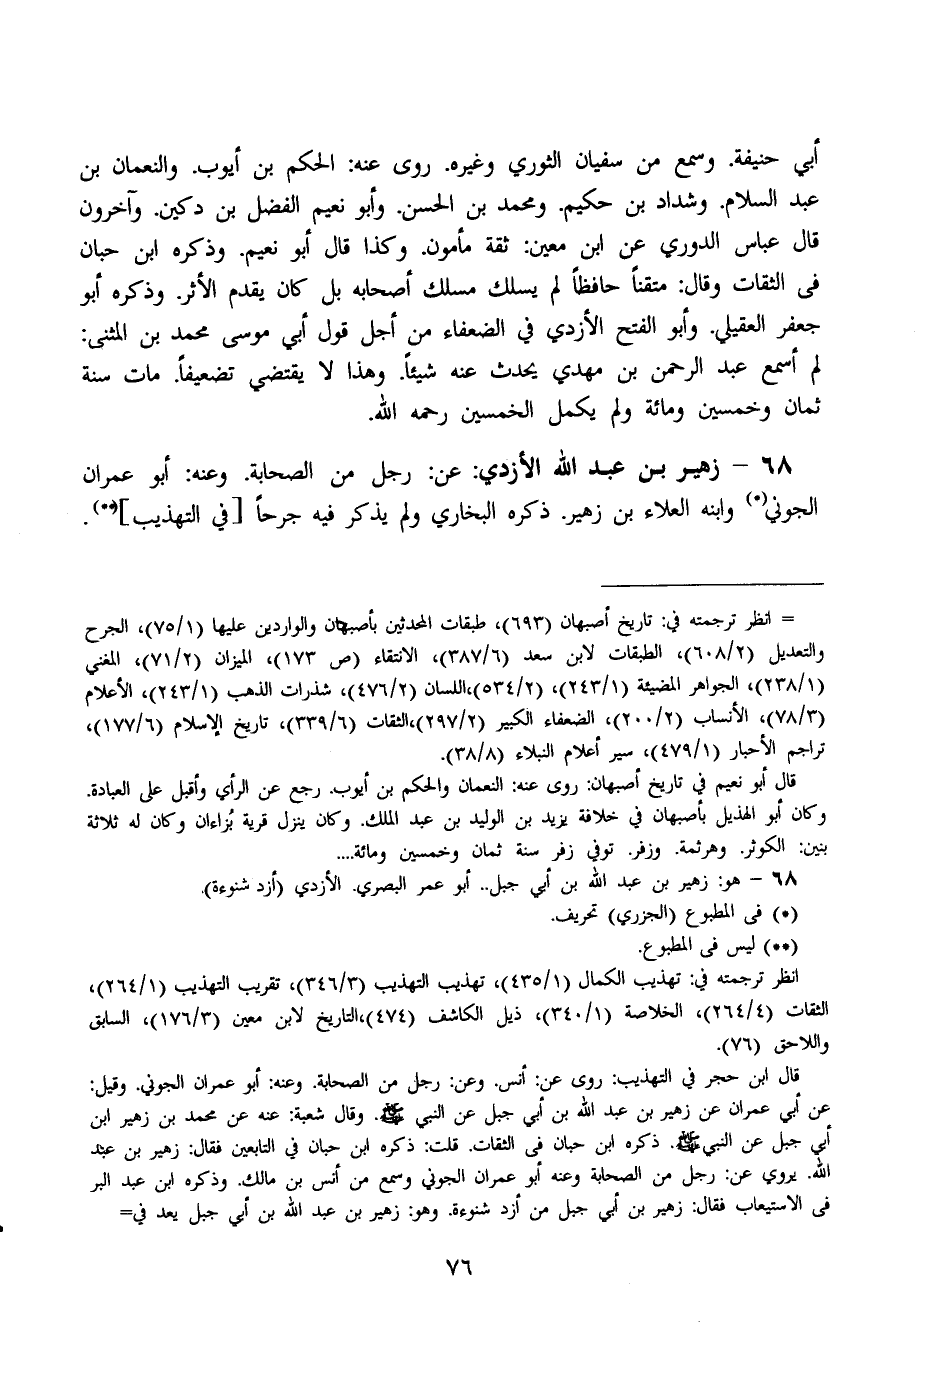 أبي حنيفة. وسمع من سفيان الثوري وغيره. روى عنه: الحكم بن أيوب. والنعمان بن
عبد السلام. وشداد بن حكيم. ومحمد بن الحسن. وأبو نعيم الفضل بن دكين. وآخرون
قال عباس الدوري عن ابن معين: ثقة مأمون. وكذا قال أبو نعيم. وذكره ابن حبان
فى الثقات وقال: متقناً حافظاً لم يسلك مسلك أصحابه بل كان يقدم الأثر. وذكره أبو
جعفر العقيلي. وأبو الفتح الأزدي في الضعفاء من أجل قول أبي موسى محمد بن المثنى:
لم أسمع عبد الرحمن بن مهدي يحدث عنه شيئاً. وهذا لا يقتضي تضعيفاً. مات سنة
ثمان وخمسين ومائة ولم يكمل الخمسين رحمه الله.
٦٨ - زهير بن عبد الله الأزدي: عن: رجل من الصحابة. وعنه: أبو عمران
الجوني(*) وابنه العلاء بن زهير. ذكره البخاري ولم يذكر فيه جرحاً [في التهذيب](**).
= انظر ترجمته في: تاريخ أصبهان (٦٩٣)، طبقات المحدثين بأصبهان والواردين عليها (٧٥/١)، الجرح
والتعديل (٦٠٨/٢)، الطبقات لابن سعد (٣٨٧/٦)، الانتقاء (ص ١٧٣)، الميزان (٧١/٢)، المغني
(٢٣٨/١)، الجواهر المضيئة (٢٤٣/١)، (٥٣٤/٢)،اللسان (٤٧٦/٢)، شذرات الذهب (٢٤٣/١)، الأعلام
(٧٨/٣)، الأنساب (٢٠٠/٢)، الضعفاء الكبير (٢٩٧/٢)،الثقات (٣٣٩/٦)، تاريخ الإسلام (١٧٧/٦)،
تراجم الأحبار (٤٧٩/١)، سير أعلام النبلاء (٣٨/٨).
قال أبو نعيم في تاريخ أصبهان: روى عنه: النعمان والحكم بن أيوب. رجع عن الرأي وأقبل على العبادة.
وكان أبو الهذيل بأصبهان في خلافة يزيد بن الوليد بن عبد الملك. وكان ينزل قرية بُزاءان وكان له ثلاثة
بنين: الكوثر. وهرثمة. وزفر. توفي زفر سنة ثمان وخمسين ومائة....
٦٨ - هو: زهير بن عبد الله بن أبي جبل.. أبو عمر البصري. الأزدي (أزد شنوءة).
(*) فى المطبوع (الجزري) تحريف.
(**) ليس فى المطبوع.
انظر ترجمته في: تهذيب الكمال (٤٣٥/١)، تهذيب التهذيب (٣٤٦/٣)، تقريب التهذيب (٢٦٤/١)،
الثقات (٢٦٤/٤)، الخلاصة (٣٤٠/١)، ذيل الكاشف (٤٧٤)،التاريخ لابن معين (١٧٦/٣)، السابق
واللاحق (٧٦).
قال ابن حجر في التهذيب: روى عن: أنس. وعن: رجل من الصحابة. وعنه: أبو عمران الجوني. وقيل:
عن أبي عمران عن زهير بن عبد الله بن أبي جبل عن النبي ﷺ. وقال شعبة: عنه عن محمد بن زهير ابن
أبي جبل عن النبي ﷺ. ذكره ابن حبان فى الثقات. قلت: ذكره ابن حبان في التابعين فقال: زهير بن عبد
الله. يروي عن: رجل من الصحابة وعنه أبو عمران الجوني وسمع من أنس بن مالك. وذكره ابن عبد البر
فى الاستيعاب فقال: زهير بن أبي جبل من أزد شنوءة. وهو: زهير بن عبد الله بن أبي جبل يعد في=
٧٦